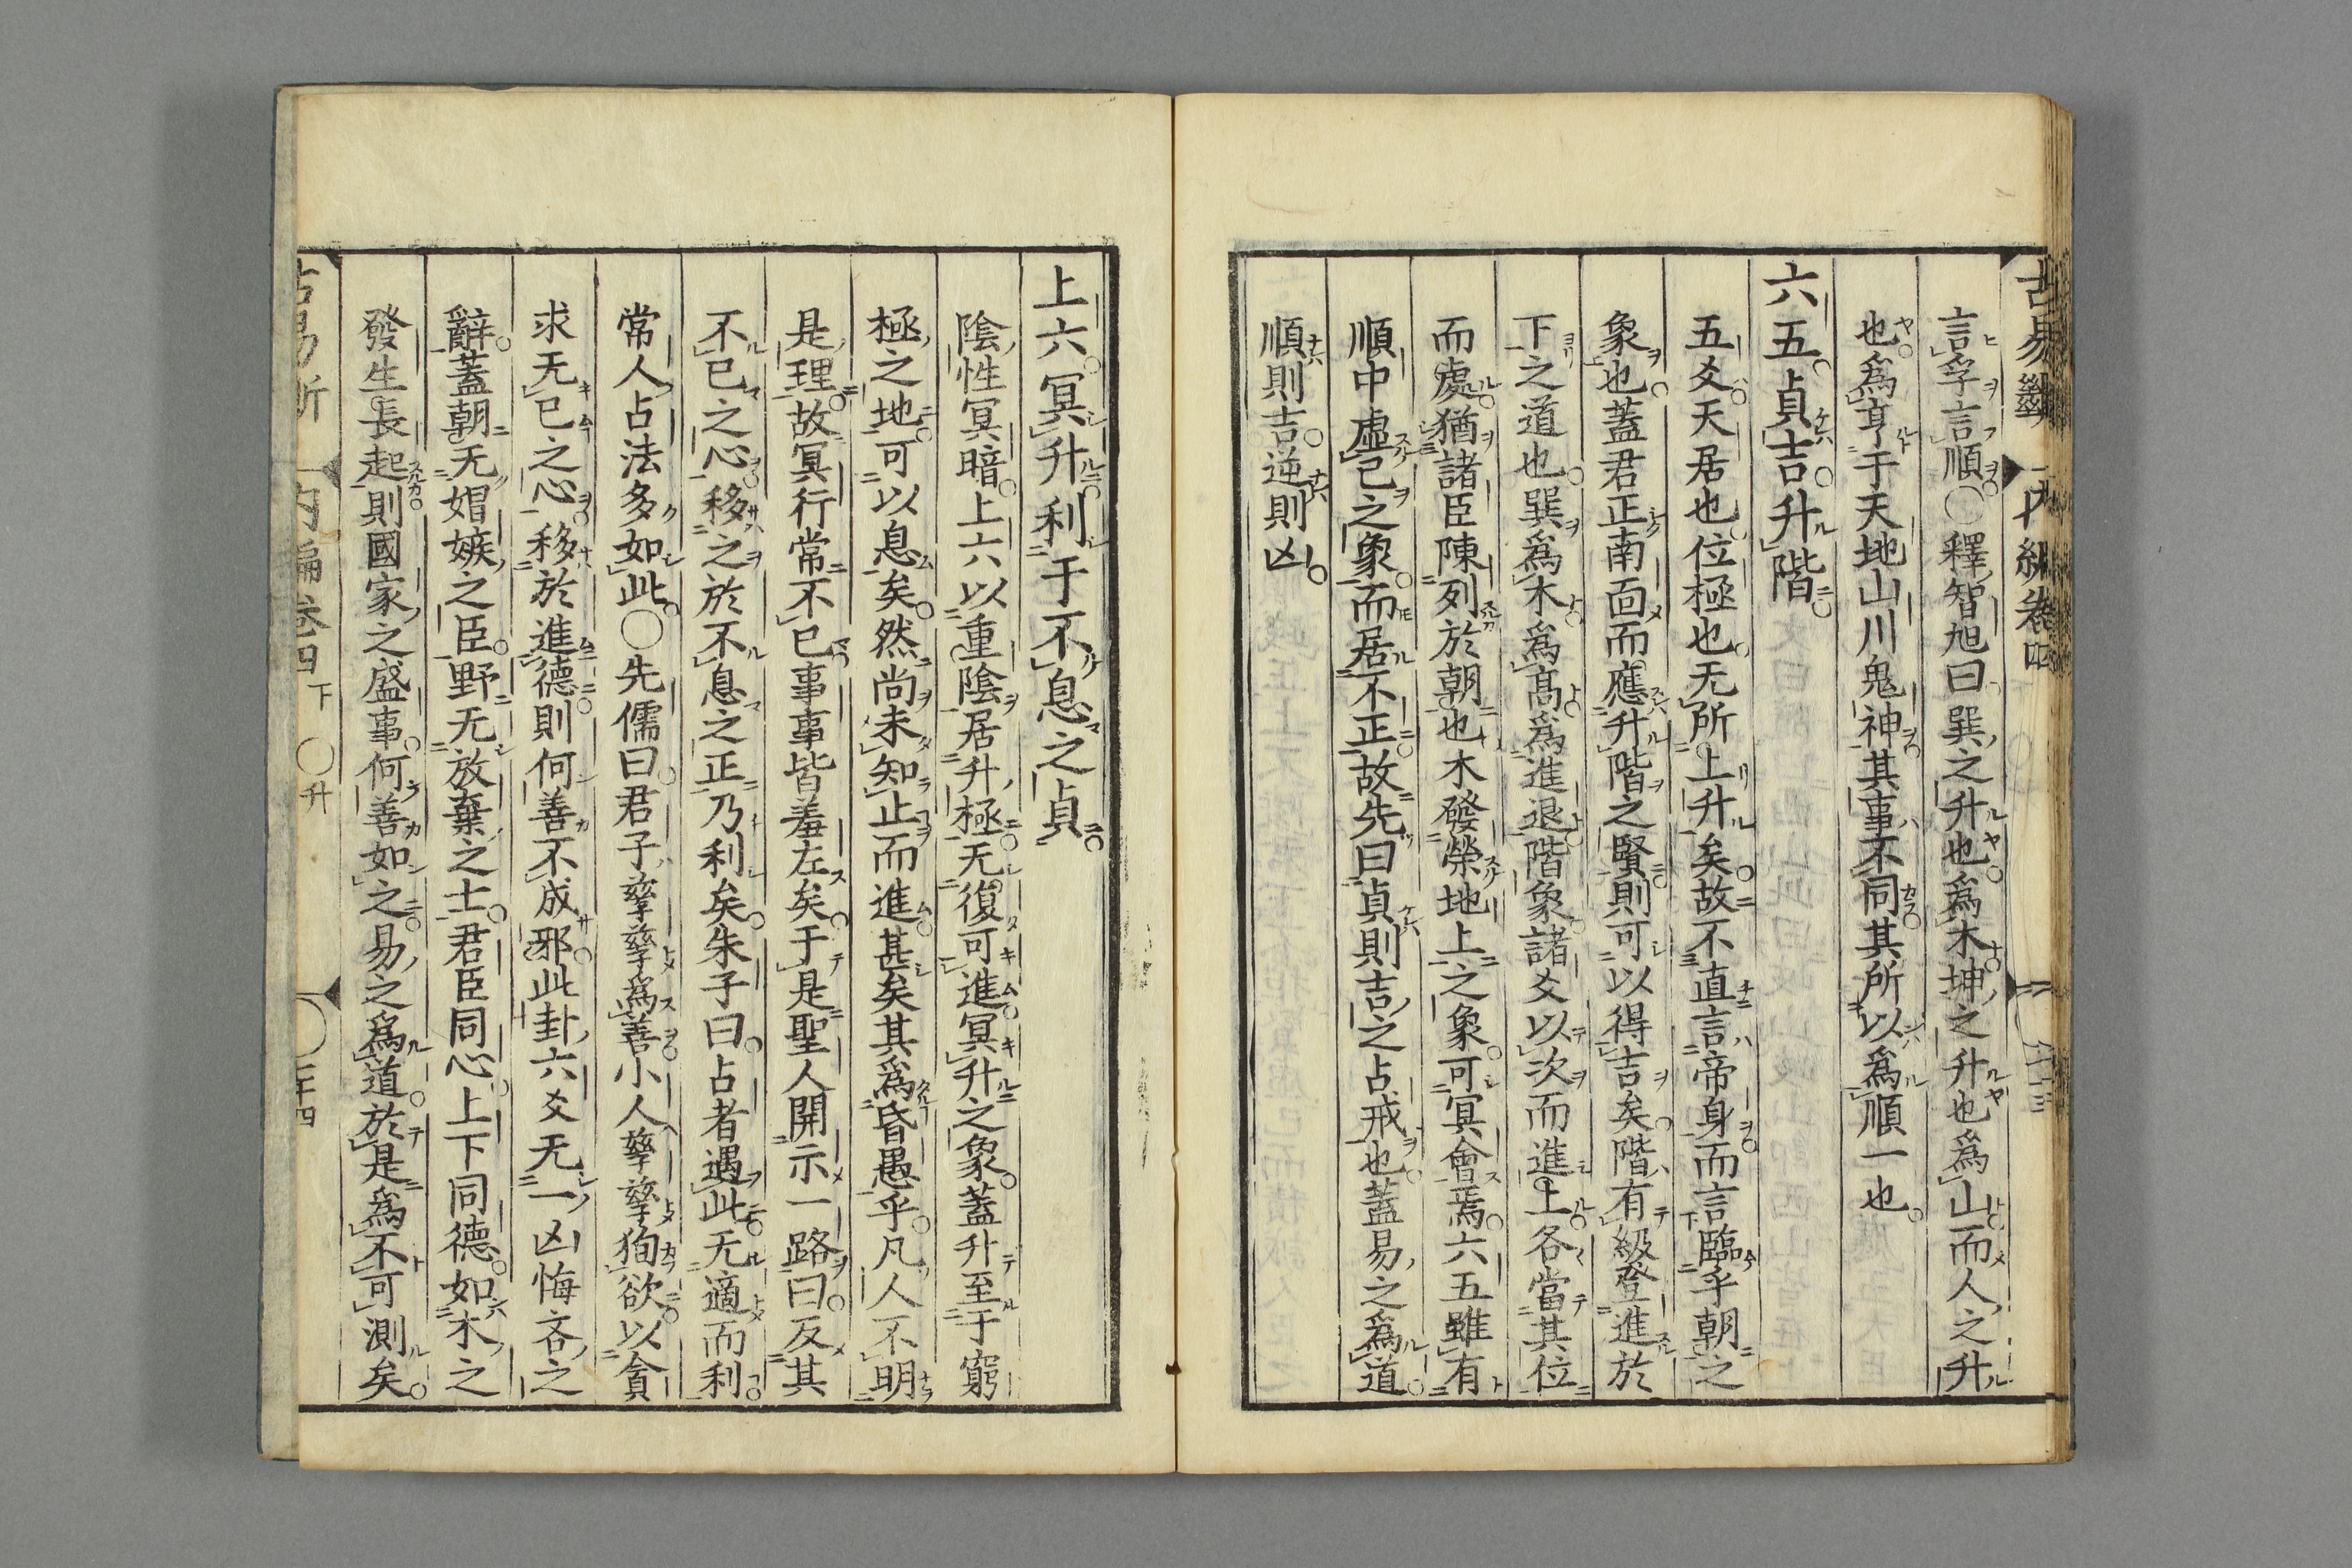 古易斷 内編卷四
言孚言順○釋智旭曰巽之升也爲木坤之升也爲山而人之升
也爲亨于天地山川鬼神其事不同其所以爲順一也
六五貞吉升階
五爻天居也位極也无所上升矣故不直言帝身而言臨乎朝之
象也蓋君正南面而應升階之賢則可以得吉矣階有級登進於
下之道也巽爲木爲高爲進退階象諸爻以次而進上各當其位
而處猶諸臣陳列於朝也木發榮地上之象可冥會焉六五雖有
順中虛己之象而居不正故先曰貞則吉之占戒也蓋易之爲道
順則吉逆則凶
上六冥升利于不息之貞
陰性冥暗上六以重陰居升極无復可進冥升之象蓋升至于窮
極之地可以息矣然尚未知止而進甚矣其爲昏愚乎凡人不明
是理故冥行常不已事事皆羞左矣于是聖人開示一路曰反其
不已之心移之於不息之正乃利矣朱子曰占者遇此无適而利
常人占法多如此○先儒曰君子孳孳爲善小人孳孳狥欲以貪
求无已之心移於進德則何善不成邪此卦六爻无一凶悔吝之
辭蓋朝无媢嫉之臣野无放棄之士君臣同心上下同德如木之
發生長起則國家之盛事何善如之易之爲道於是爲不可測矣
古易斷 内編卷四下 ○升 二十四